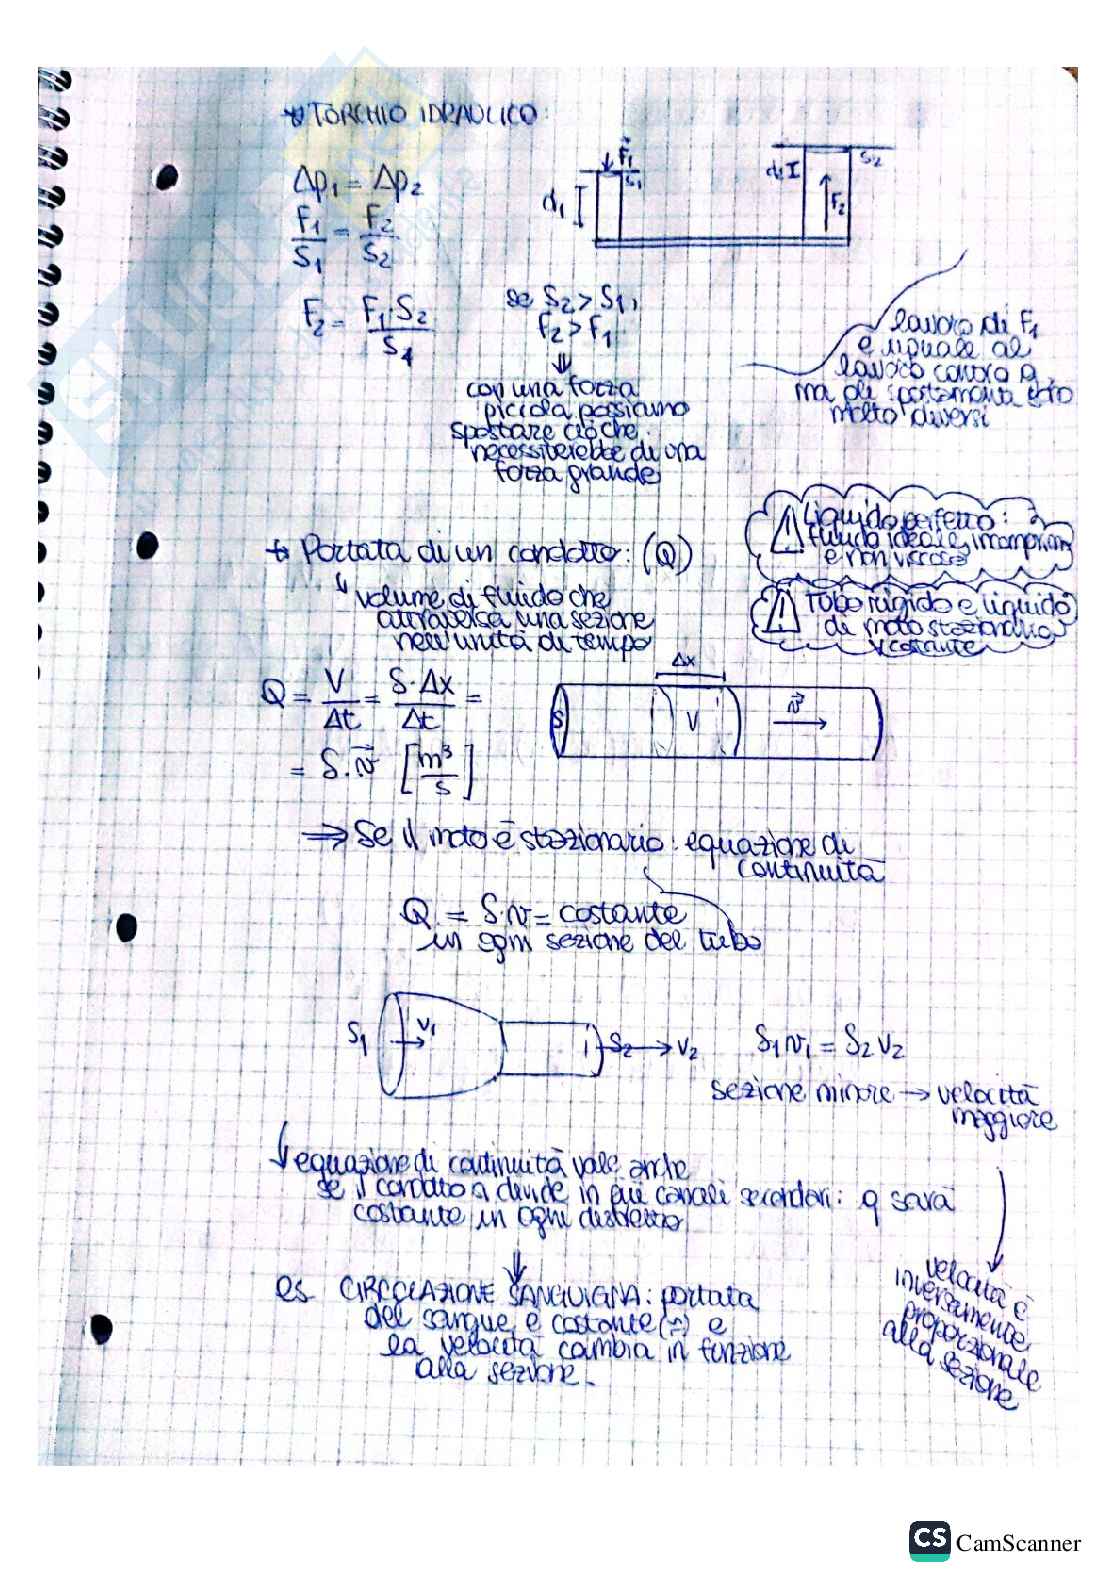 TORCHIO IDRAULICO:
Δp₁ = Δp₂
F₁/S₁ = F₂/S₂
F₂ = F₁·S₂/S₁
se S₂ > S₁,
F₂ > F₁
⇓
con una forza
piccola possiamo
spostare ciò che
necessiterebbe di una
forza grande
F₁
S₁
d₁
d₂
S₂
F₂
lavoro di F₁
è uguale al
lavoro
ma gli spostamenti
molto diversi
Portata di un condotto: (Q)
↳ volume di fluido che
attraversa una sezione
nell'unità di tempo
⚠ Liquido perfetto:
fluido ideale, incomprim
e non viscoso
⚠ Tubo rigido e liquido
di moto stazionario
v costante
Q = V/Δt = S·Δx/Δt =
= S·v⃗ [m³/s]
Δx
S
V
v⃗
⇒ Se il moto è stazionario: equazione di
continuità
Q = S·v = costante
in ogni sezione del tubo
S₁
v₁
S₂
v₂
S₁v₁ = S₂v₂
sezione minore → velocità
maggiore
equazione di continuità vale anche
se il condotto si divide in più canali secondari: q sarà
costante in ogni distretto
velocità è
inversamente
proporzionale
alla sezione
es CIRCOLAZIONE SANGUIGNA: portata
del sangue è costante e
la velocità cambia in funzione
alla sezione.
CS CamScanner